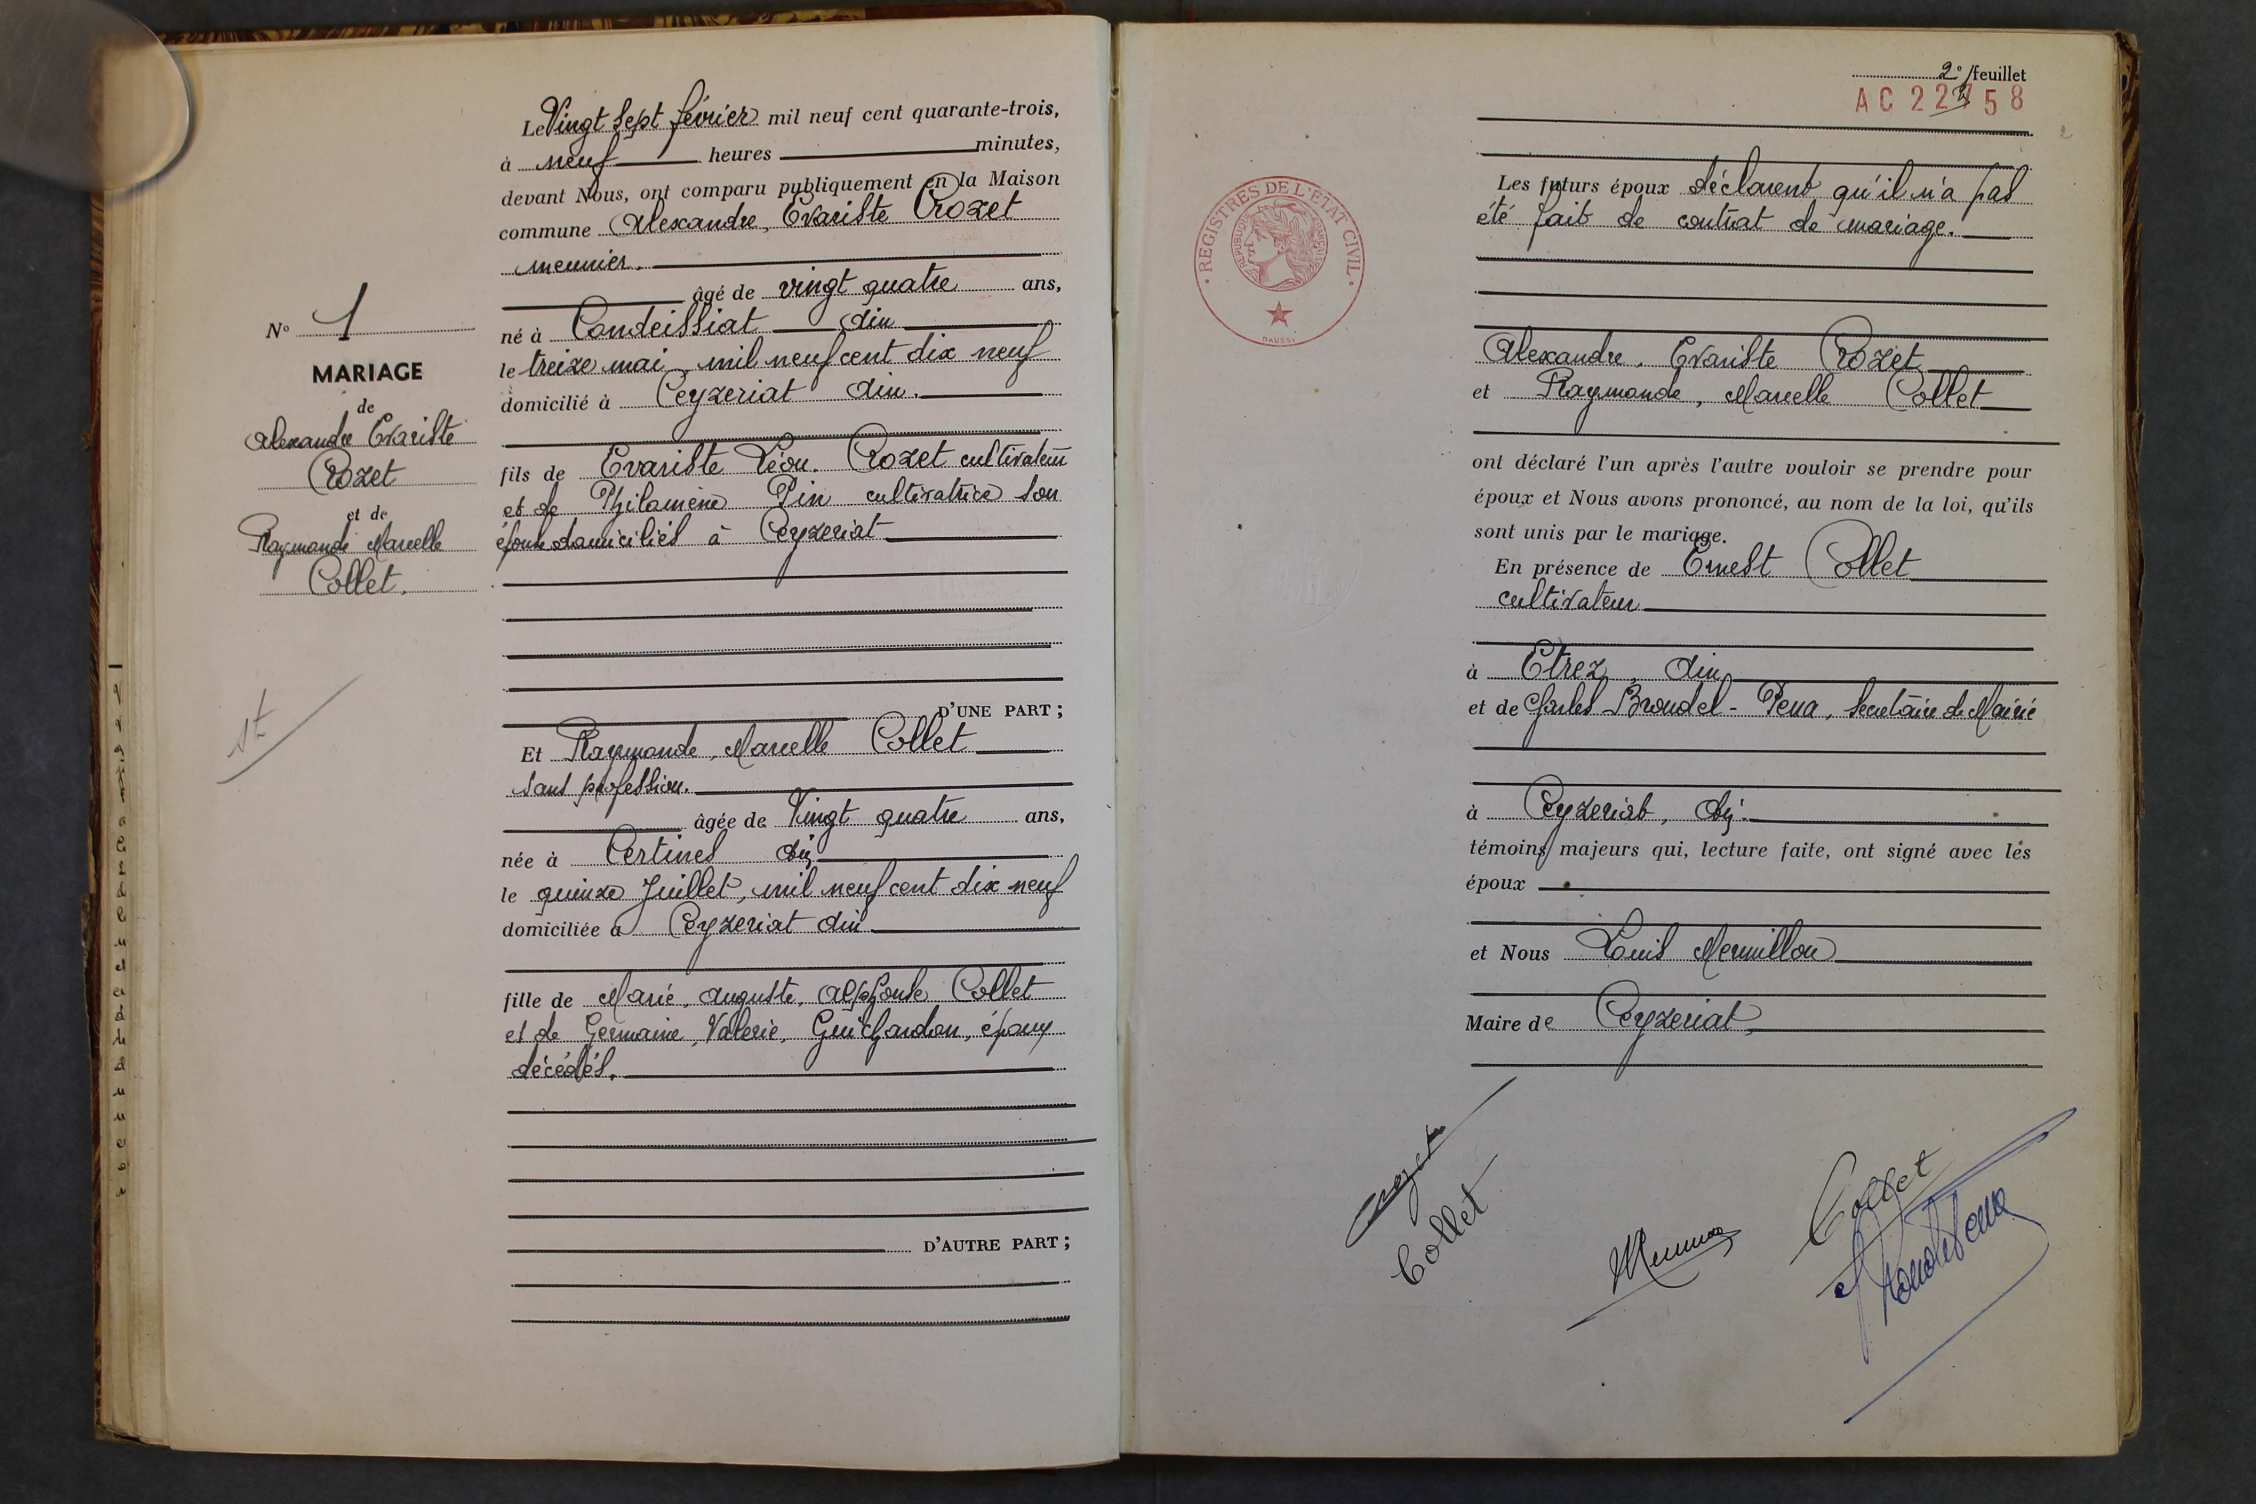 Le Vingt sept février mil neuf cent quarante-trois,
à neuf heures minutes,
devant Nous, ont comparu publiquement en la Maison
commune Alexandre, Evariste Crozet
meunier.
âgé de vingt quatre ans,
né à Condeissiat Ain
le treize mai mil neuf cent dix neuf
domicilié à Ceyzeriat Ain.
fils de Evariste Léon. Crozet cultivateur
et de Philomène Pin cultivatrice son
épouse domiciliés à Ceyzeriat
D'UNE PART ;
Et Raymonde, Marcelle Collet
sans profession.
âgée de Vingt quatre ans,
née à Certines Ain
le quinze Juillet, mil neuf cent dix neuf
domiciliée à Ceyzeriat Ain
fille de Marie, Auguste, Alphonse Collet
et de Germaine, Valerie, Guichardon, époux
décédés.
D'AUTRE PART ;
N° 1
MARIAGE
de
Alexandre Evariste
Crozet
et de
Raymonde Marcelle
Collet.
2° feuillet
AC 22 58
REGISTRES DE L'ÉTAT CIVIL
Les futurs époux déclarent qu'il n'a pas
été fait de contrat de mariage.
Alexandre, Evariste Crozet
et Raymonde, Marcelle Collet
ont déclaré l'un après l'autre vouloir se prendre pour
époux et Nous avons prononcé, au nom de la loi, qu'ils
sont unis par le mariage.
En présence de Ernest Collet
cultivateur
à Etrez, Ain
et de Charles Brondel - Pena, Secrétaire de Mairie
à Ceyzeriat, Ain.
témoins majeurs qui, lecture faite, ont signé avec les
époux
et Nous Louis Mermillon
Maire de Ceyzeriat,
Crozet
Collet
Collet